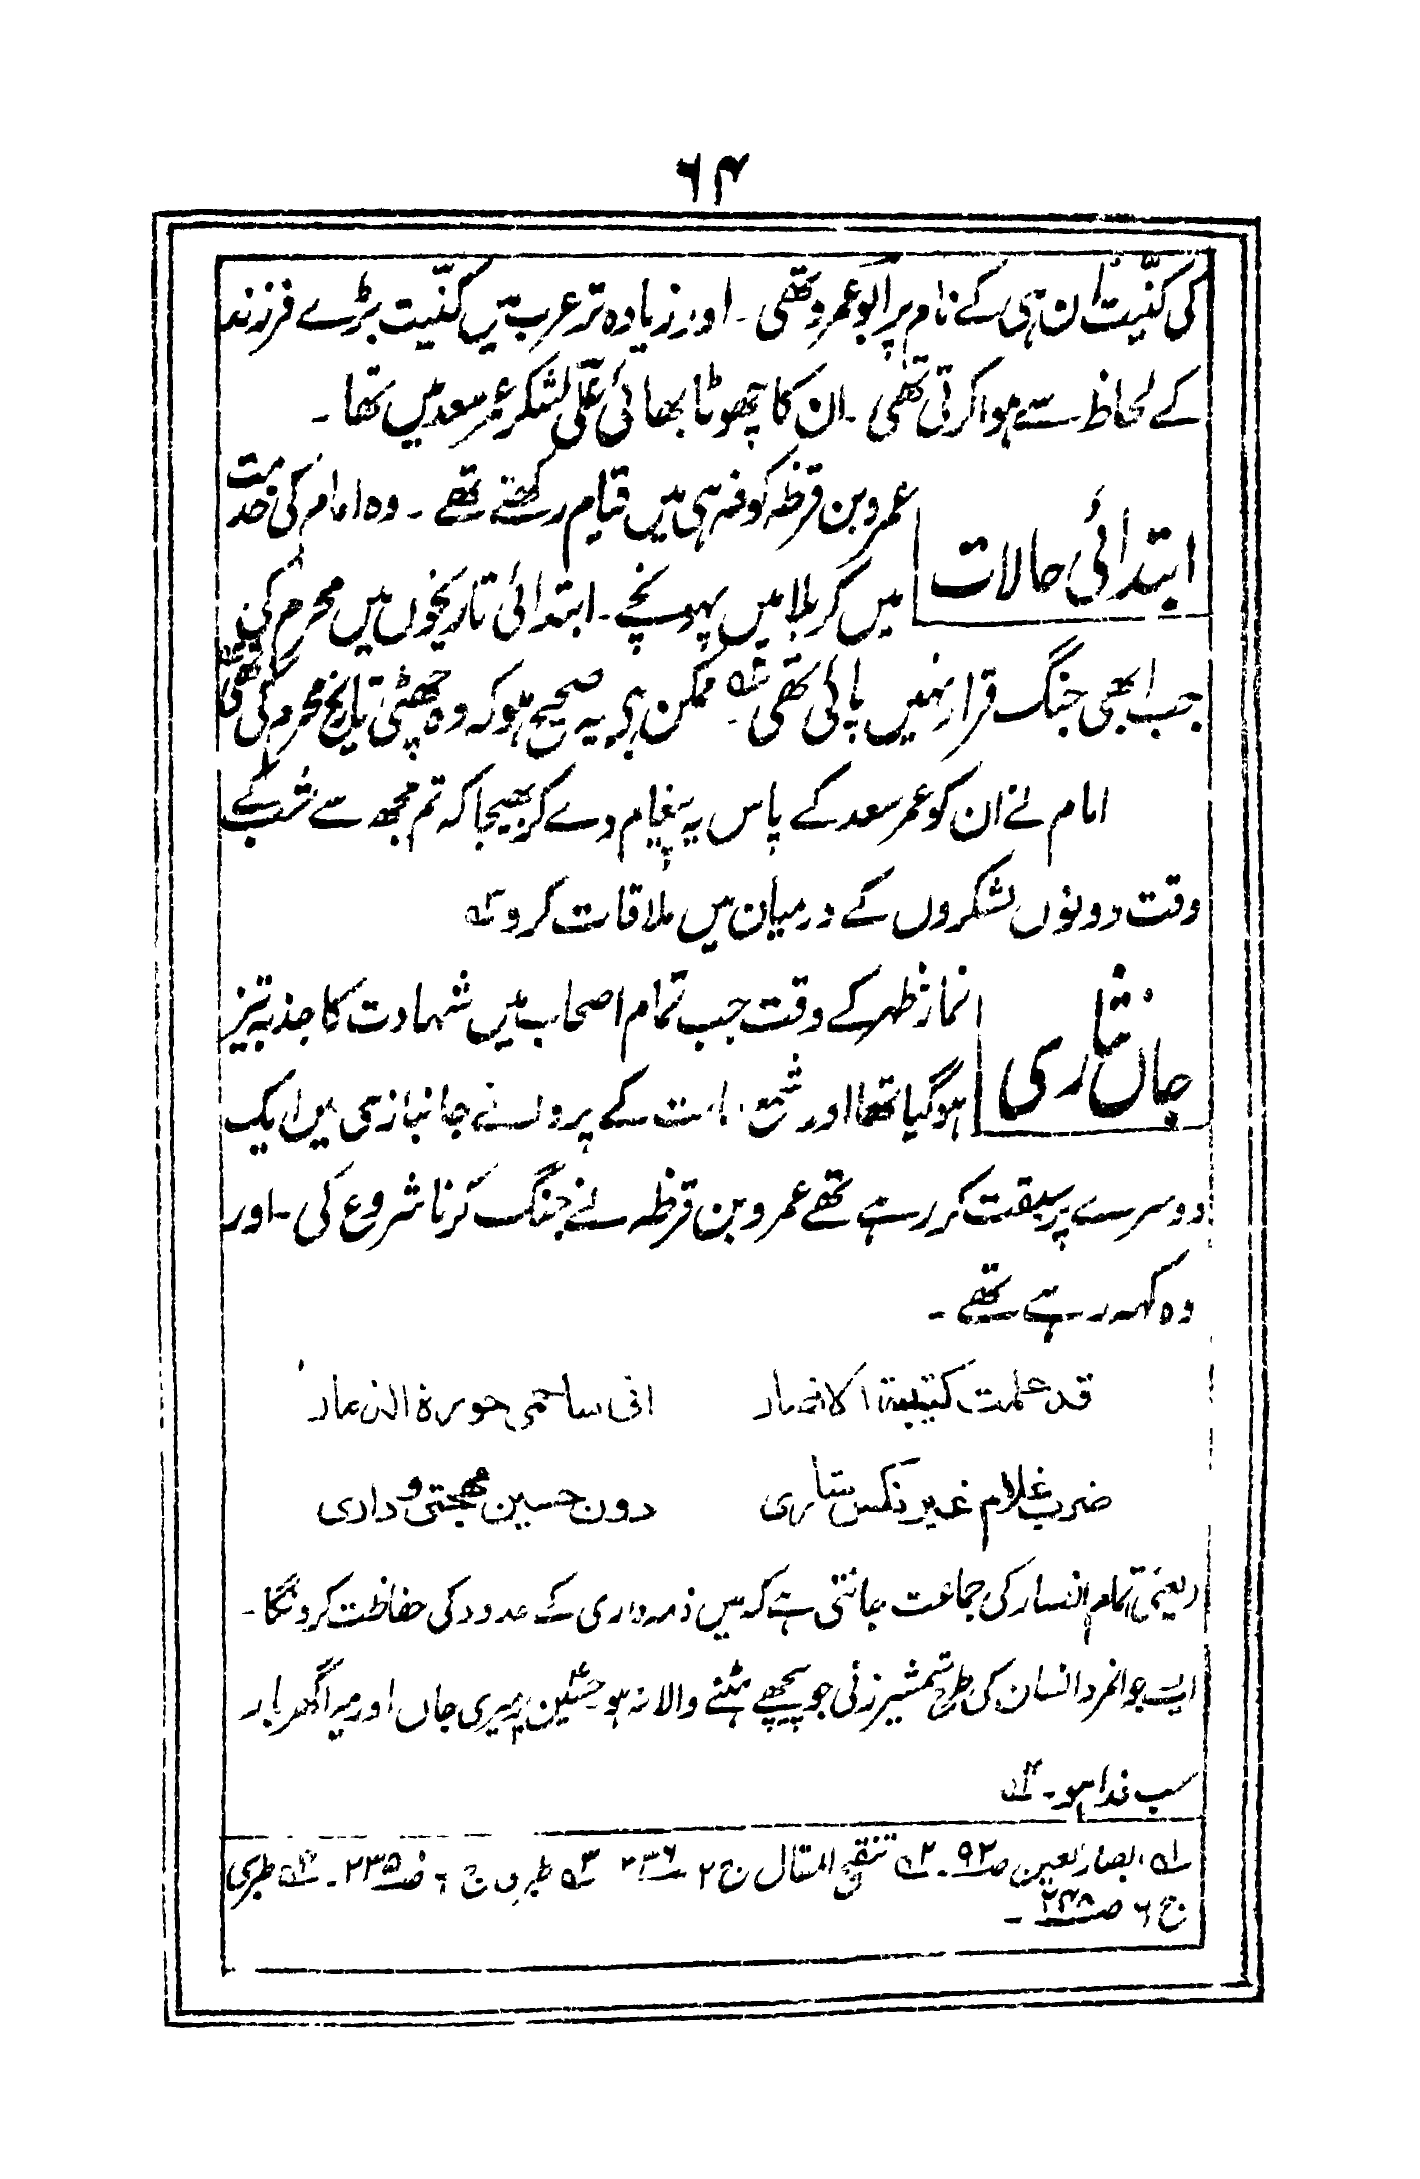 ۶۴
کی کنیت ان ہی کے نام پر ابو عمرو تھی۔ اور زیادہ تر عرب میں کنیت بڑے فرزند
کے لحاظ سے ہوا کرتی تھی۔ ان کا چھوٹا بھائی علی لشکر عمر سعد میں تھا۔
ابتدائی حالات
عمرو بن قرظہ کوفہ ہی میں قیام رکھتے تھے۔ وہ امام کی خدمت
میں کربلا میں پہونچے۔ ابتدائی تاریخوں میں محرم کی
جب ابھی جنگ قرار نہیں پائی تھی ممکن ہے یہ صحیح ہو کہ وہ چھٹی تاریخ محرم کی تھی
امام نے ان کو عمر سعد کے پاس یہ پیغام دے کر بھیجا کہ تم مجھ سے شب کے
وقت دونوں لشکروں کے درمیان میں ملاقات کرو ۳ے
جاں نثاری
نماز ظہر کے وقت جب تمام اصحاب میں شہادت کا جذبہ تیز
ہو گیا تھا اور شمع امامت کے پروانے جانبازی میں ایک
دوسرے پر سبقت کر رہے تھے عمرو بن قرظہ نے جنگ کرنا شروع کی۔ اور
وہ کہہ رہے تھے۔
قد علمت کتیبة الانصار انی ساحمی حوزة الذمار
ضرب غلام غیر نکس شاری دون حسین مهجتی و داری
(یعنی) تمام انصار کی جماعت جانتی ہے کہ میں ذمہ داری کے حدود کی حفاظت کرونگا۔
ایسے جوانمرد انسان کی طرح شمشیر زنی جو پیچھے ہٹنے والا نہ ہو حسین پر میری جاں اور میرا گھر بار
سب فدا ہو۔ ۴ے
۱ے ابصار العین ص۹۲۔ ۲ے تنقیح المقال ج ۲ ص۲۳۶ ۳ے طبری ج ۶ ص۲۳۵۔ ۴ے طبری
ج ۶ ص۲۴۸۔